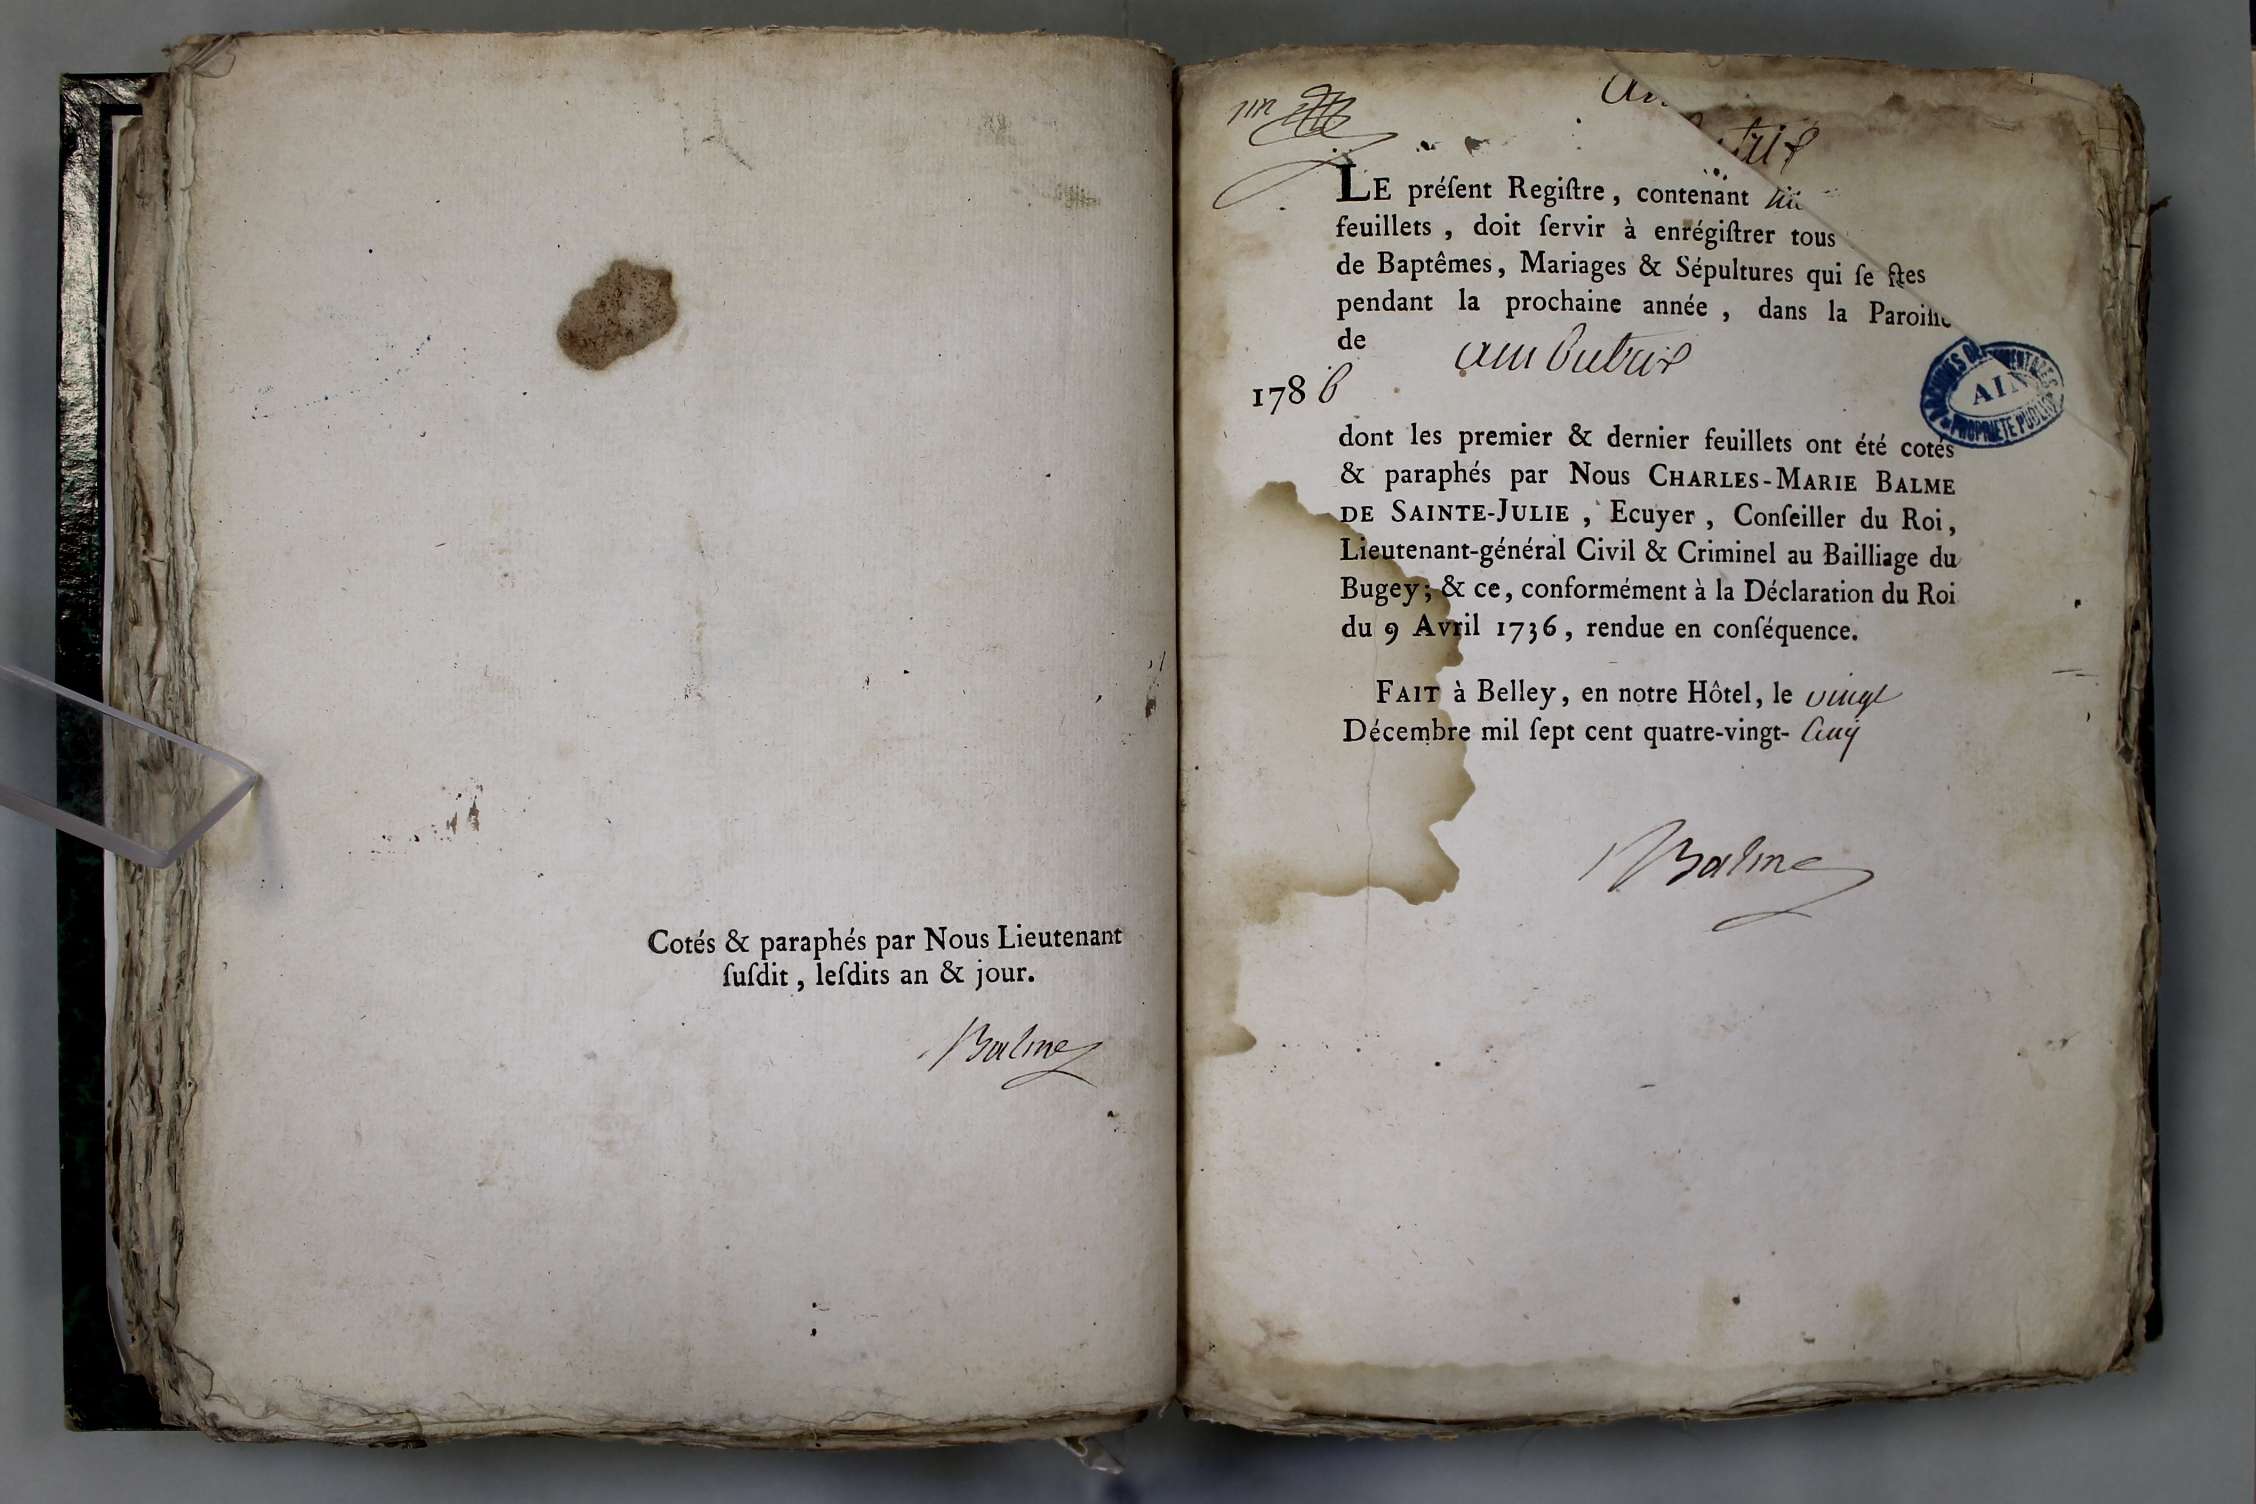 Cotés & paraphés par Nous Lieutenant
ſuſdit, leſdits an & jour.
Balme
LE préſent Regiſtre, contenant
feuillets, doit ſervir à enrégiſtrer tous
de Baptêmes, Mariages & Sépultures qui ſe
pendant la prochaine année, dans la
de ambutrix
1786
dont les premier & dernier feuillets ont été cotés
& paraphés par Nous CHARLES-MARIE BALME
DE SAINTE-JULIE, Ecuyer, Conſeiller du Roi,
Lieutenant-général Civil & Criminel au Bailliage du
Bugey; & ce, conformément à la Déclaration du Roi
du 9 Avril 1736, rendue en conſéquence.
FAIT à Belley, en notre Hôtel, le vingt
Décembre mil ſept cent quatre-vingt-cinq
Balme
ARCHIVES DEPARTEMENTALES
AIN
PROPRIETE PUBLIQUE